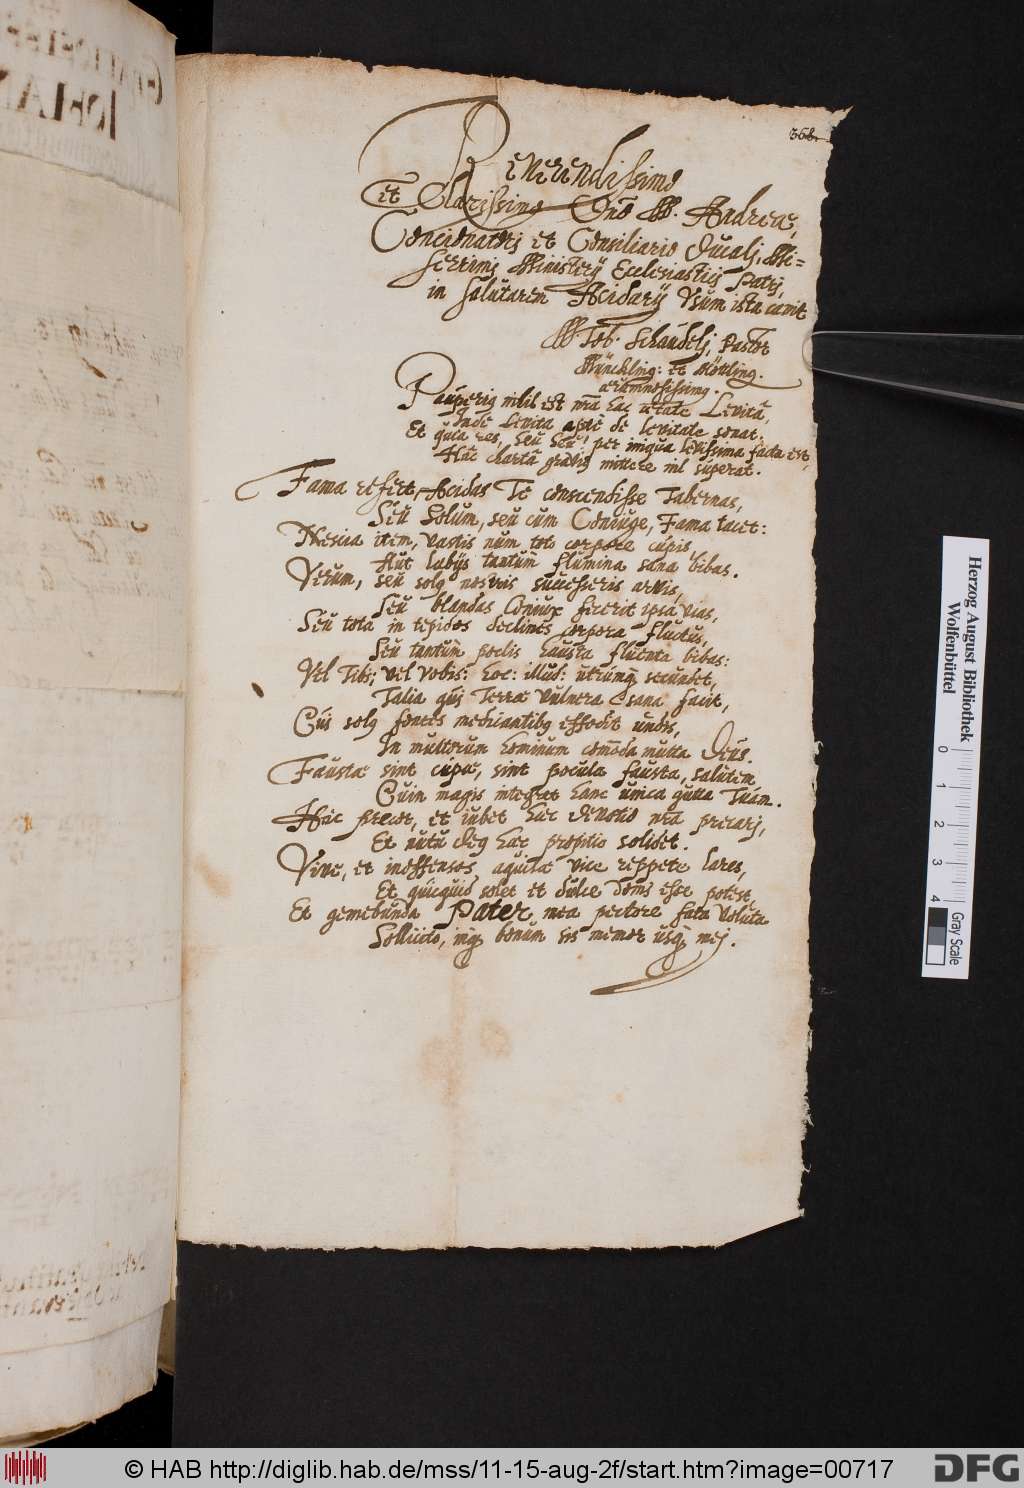 368.
Reverendissimo
et Clarissimo Dno M. Andreae,
Concionatorj et Consiliario Ducalj, Mi=
serrimj Ministerij Ecclesiasticj Patrj,
in salutarem Acidarij Usum ista canit
M. Tob. Schäubelj, Pastor
Münckling: et Möttling.
aerumnosissimg.
Pauperig nihil est nrã hac aetate Levitâ,
Inde Levita aptè de levitate sonat.
Et quia res, heu heu! per iniqua levissima facta est,
Hãc chartã gravig mittere nil superat.
Fama refert, Acidas Te conscendisse Tabernas,
Seu Solum, seu cum Coniuge, Fama tacet:
Nescia item, vastis num toto corpore cupis,
Aut labijs tantùm flumina sana bibas.
Verum, seu solg nostris successeris arvis,
Seu blandas Coniux fecerit ipsa vias,
Seu tota in tepidos declines corpora fluctus,
Seu tantùm poclis hausta fluenta bibas:
Vel Tibi; vel vobis: hoc: illud: utrumq secundet,
Talia qui Terrae vulnera sana facit,
Cuis solg fontes medicantibg effodit undis,
In multorum hominum com̃oda multa Deus.
Faustae sint cupae, sint pocula fausta, salutem
Cuin magis integret hanc unica gutta Tuam.
Hũc precor, et iubet haec devotio nrã precarj,
Et nutu Deg haec propitio solidet.
Vive, et inoffensos aquilae vice reppete lares,
Et quicquid solet et dulce Doms esse potest,
Et gemebunda Pater, mea pectore fata voluta
Sollicito, inq bonum sis memor usq mej.
Herzog August Bibliothek
Wolfenbüttel
0 1 2 3 4
Gray Scale
© HAB http://diglib.hab.de/mss/11-15-aug-2f/start.htm?image=00717
DFG